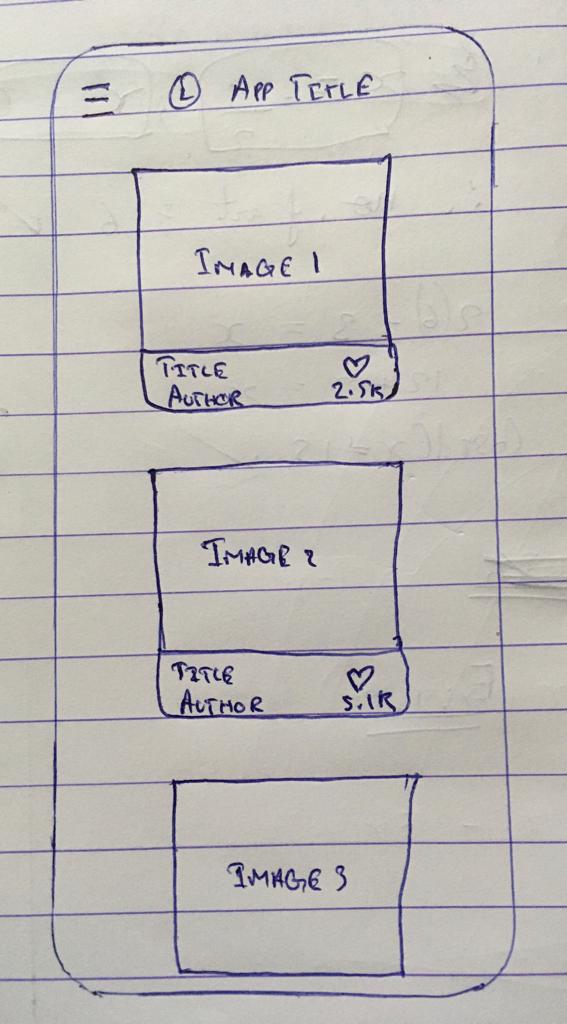 L APP TITLE
IMAGE 1
TITLE
AUTHOR 2.5K
IMAGE 2
TITLE
AUTHOR 5.1K
IMAGE 3